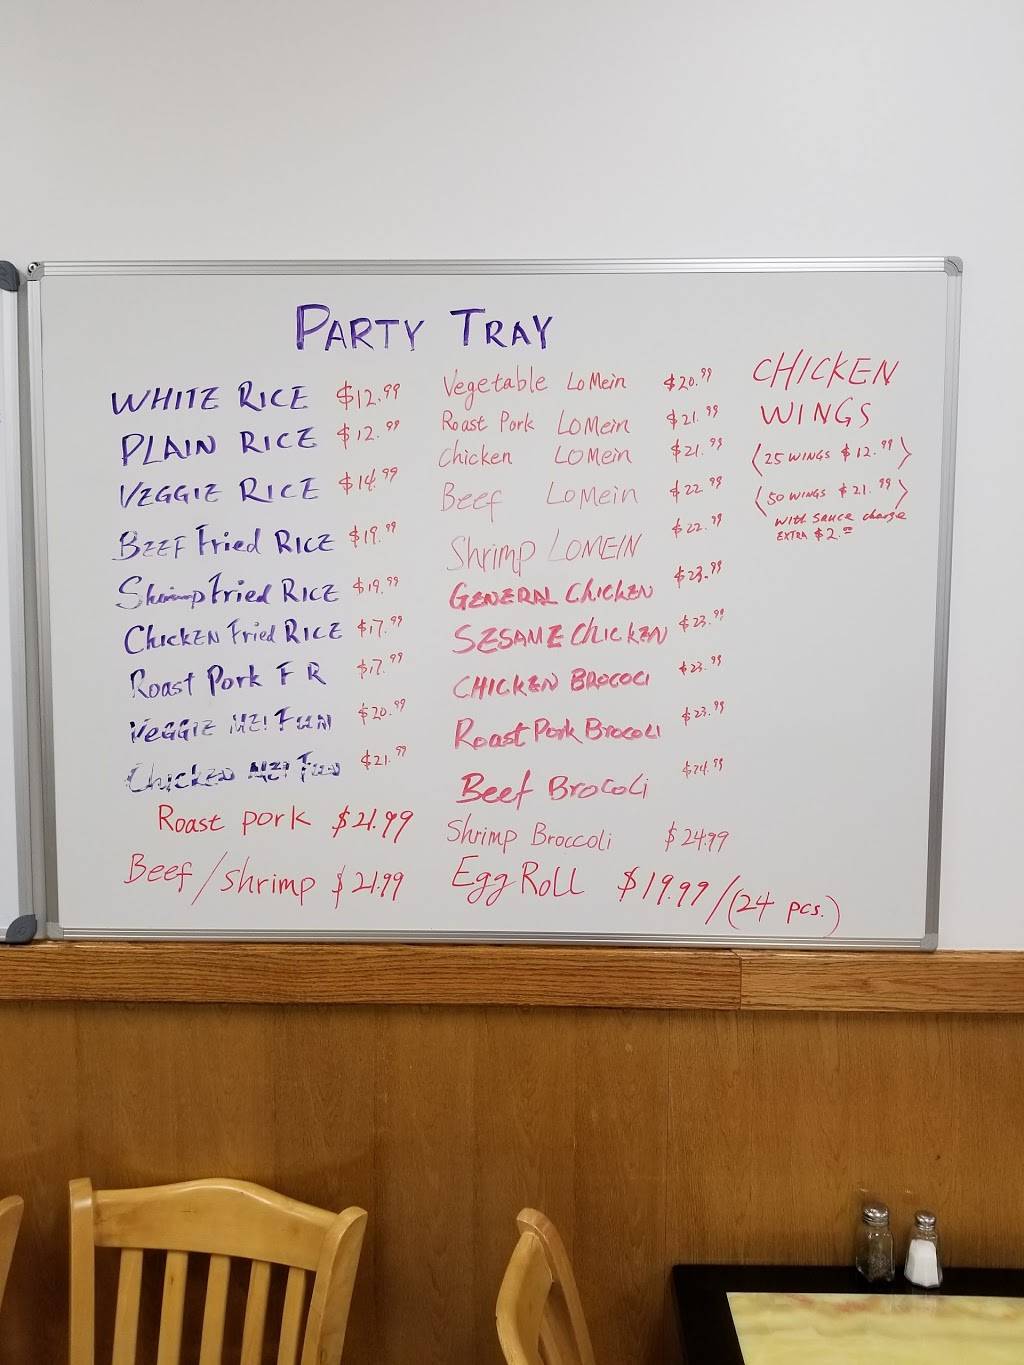 PARTY TRAY
WHITE RICE $12.99
PLAIN RICE $12.99
VEGGIE RICE $14.99
BEEF Fried RICE $19.99
Shrimp Fried RICE $19.99
CHICKEN Fried RICE $17.99
Roast Pork F R $17.99
VEGGIE MEI FUN $20.99
Chicken MEI Fun $21.99
Roast pork $21.99
Beef/shrimp $21.99
Vegetable LoMein $20.99
Roast Pork LOMein $21.99
Chicken LOMein $21.99
Beef LoMein $22.99
Shrimp LOMEIN $22.99
GENERAL CHICKEN $23.99
SESAME CHICKEN $23.99
CHICKEN BROCOCI $23.99
Roast Pork BROCOLI $23.99
Beef BROCOLI $24.99
Shrimp Broccoli $24.99
Egg Roll $19.99/(24 pcs.)
CHICKEN
WINGS
(25 WINGS $12.99)
(50 WINGS $21.99)
with sauce charge
EXTRA $2.00